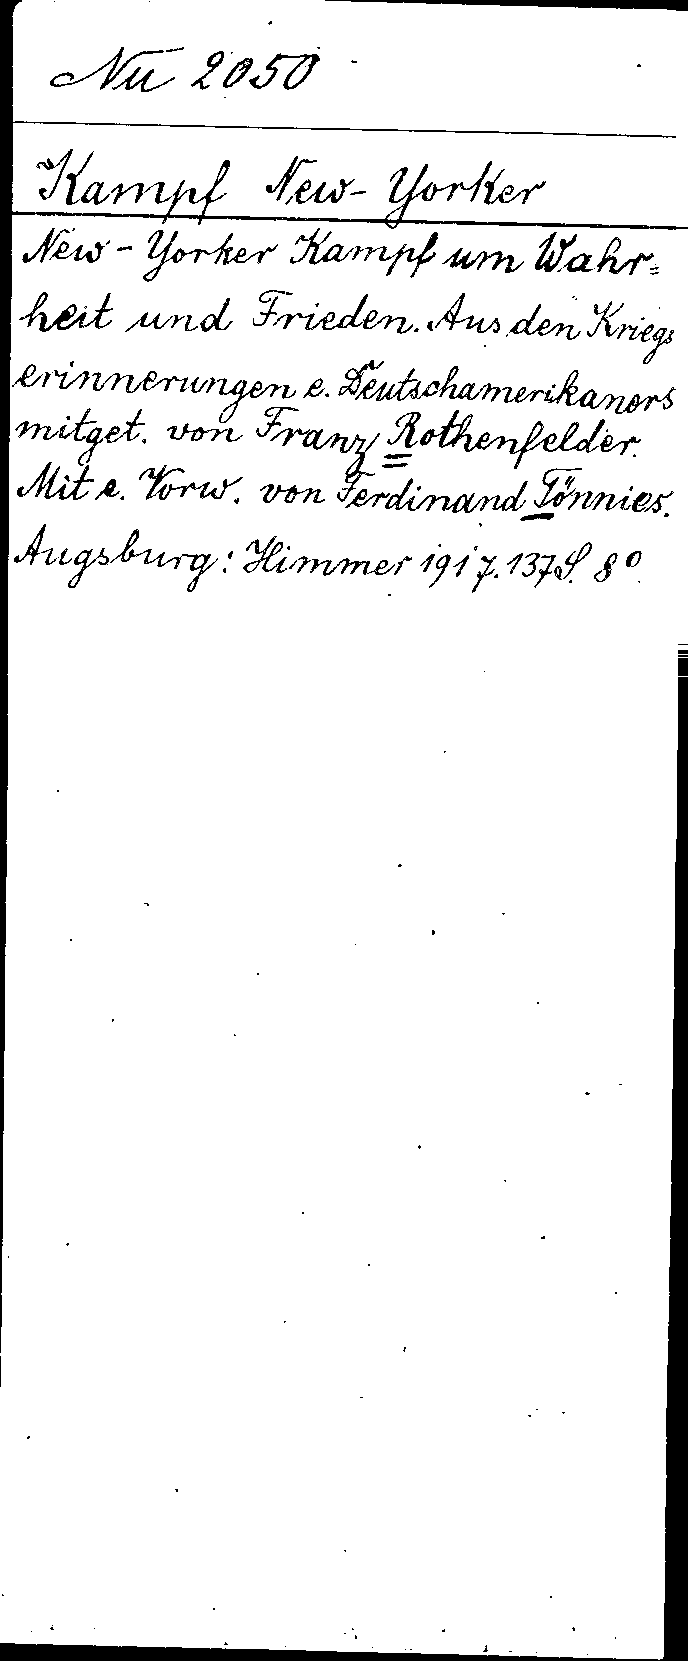 Nu 2050
Kampf New-Yorker
New-Yorker Kampf um Wahr=
heit und Frieden. Aus den Kriegs
erinnerungen e. Deutschamerikaners
mitget. von Franz Rothenfelder.
Mit e. Vorw. von Ferdinand Tönnies.
Augsburg: Himmer 1917. 137 S. 8°